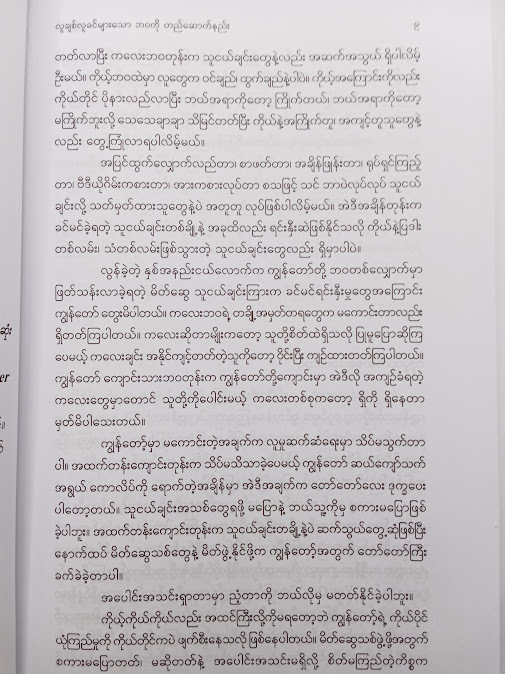 လူချစ်လူခင်များသော ဘဝကို တည်ဆောက်နည်း ၉
တတ်လာပြီး ကလေးဘဝတုန်းက သူငယ်ချင်းတွေနဲ့လည်း အဆက်အသွယ် ရှိပါလိမ့်
ဦးမယ်။ ကိုယ့်ဘဝထဲမှာ လူတွေက ဝင်ချည် ထွက်ချည်နဲ့ပါပဲ။ ကိုယ့်အကြောင်းကိုလည်း
ကိုယ်တိုင် ပိုနားလည်လာပြီး ဘယ်အရာကိုတော့ ကြိုက်တယ်၊ ဘယ်အရာကိုတော့
မကြိုက်ဘူးလို့ သေသေချာချာ သိမြင်တတ်ပြီး ကိုယ်နဲ့အကြိုက်တူ၊ အကျင့်တူသူတွေနဲ့
လည်း တွေ့ကြုံလာရပါလိမ့်မယ်။
အပြင်ထွက်လျှောက်လည်တာ၊ စာဖတ်တာ၊ အချိန်ဖြုန်းတာ၊ ရုပ်ရှင်ကြည့်
တာ၊ ဗီဒီယိုဂိမ်းကစားတာ၊ အားကစားလုပ်တာ စသဖြင့် သင် ဘာပဲလုပ်လုပ် သူငယ်
ချင်းလို့ သတ်မှတ်ထားသူတွေနဲ့ပဲ အတူတူ လုပ်ဖြစ်ပါလိမ့်မယ်။ အဲဒီအချိန်တုန်းက
ခင်မင်ခဲ့ရတဲ့ သူငယ်ချင်းတစ်ချို့နဲ့ အခုထိလည်း ရင်းနှီးဆဲဖြစ်နိုင်သလို ကိုယ်နဲ့ပြဒါး
တစ်လမ်း၊ သံတစ်လမ်းဖြစ်သွားတဲ့ သူငယ်ချင်းတွေလည်း ရှိမှာပါပဲ။
လွန်ခဲ့တဲ့ နှစ်အနည်းငယ်လောက်က ကျွန်တော်တို့ ဘဝတစ်လျှောက်မှာ
ဖြတ်သန်းလာခဲ့ရတဲ့ မိတ်ဆွေ သူငယ်ချင်းကြားက ခင်မင်ရင်းနှီးမှုတွေအကြောင်း
ကျွန်တော် တွေးမိပါတယ်။ ကလေးဘဝရဲ့ တချို့အမှတ်တရတွေက မကောင်းတာလည်း
ရှိတတ်ကြပါတယ်။ ကလေးဆိုတာမျိုးကတော့ သူတို့စိတ်ထဲရှိသလို ပြုမူပြောဆိုကြ
ပေမယ့် ကလေးချင်း အနိုင်ကျင့်တတ်တဲ့သူကိုတော့ ဝိုင်းပြီး ကျဉ်ထားတတ်ကြပါတယ်။
ကျွန်တော် ကျောင်းသားဘဝတုန်းက ကျွန်တော်တို့ကျောင်းမှာ အဲဒီလို အကျဉ်ခံရတဲ့
ကလေးတွေမှာတောင် သူတို့ကိုပေါင်းမယ့် ကလေးတစ်စုကတော့ ရှိကို ရှိနေတာ
မှတ်မိပါသေးတယ်။
ကျွန်တော့်မှာ မကောင်းတဲ့အချက်က လူမှုဆက်ဆံရေးမှာ သိပ်မသွက်တာ
ပါ။ အထက်တန်းကျောင်းတုန်းက သိပ်မသိသာခဲ့ပေမယ့် ကျွန်တော် ဆယ်ကျော်သက်
အရွယ် ကောလိပ်ကို ရောက်တဲ့အချိန်မှာ အဲဒီအချက်က တော်တော်လေး ဒုက္ခပေး
ပါတော့တယ်။ သူငယ်ချင်းအသစ်တွေရဖို့ မပြောနဲ့ ဘယ်သူ့ကိုမှ စကားမပြောဖြစ်
ခဲ့ပါဘူး။ အထက်တန်းကျောင်းတုန်းက သူငယ်ချင်းတချို့နဲ့ပဲ ဆက်သွယ်တွေ့ဆုံဖြစ်ပြီး
နောက်ထပ် မိတ်ဆွေသစ်တွေနဲ့ မိတ်ဖွဲ့နိုင်ဖို့က ကျွန်တော့်အတွက် တော်တော်ကြီး
ခက်ခဲခဲ့တာပါ။
အပေါင်းအသင်းရှာတာမှာ ညံ့တာကို ဘယ်လိုမှ မတတ်နိုင်ခဲ့ပါဘူး။
ကိုယ့်ကိုယ်ကိုယ်လည်း အထင်ကြီးလို့ကိုမရတော့ဘဲ ကျွန်တော့်ရဲ့ ကိုယ်ပိုင်
ယုံကြည်မှုကို ကိုယ်တိုင်ကပဲ ဖျက်စီးနေသလို ဖြစ်နေပါတယ်။ မိတ်ဆွေသစ်ဖွဲ့ဖို့အတွက်
စကားမပြောတတ်၊ မဆိုတတ်နဲ့ အပေါင်းအသင်းမရှိလို့ စိတ်မကြည်တဲ့ကိစ္စက